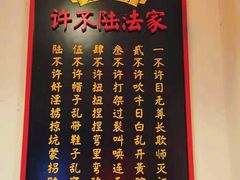 家法陆不许
一不许目无尊长欺师灭
贰不许吹牛日白乱开黄
叁不许打架过裂叫唤连
肆不许扭扭捏捏弯里弯
伍不许帽子乱带鞋子乱
陆不许奸淫掳掠坑蒙拐